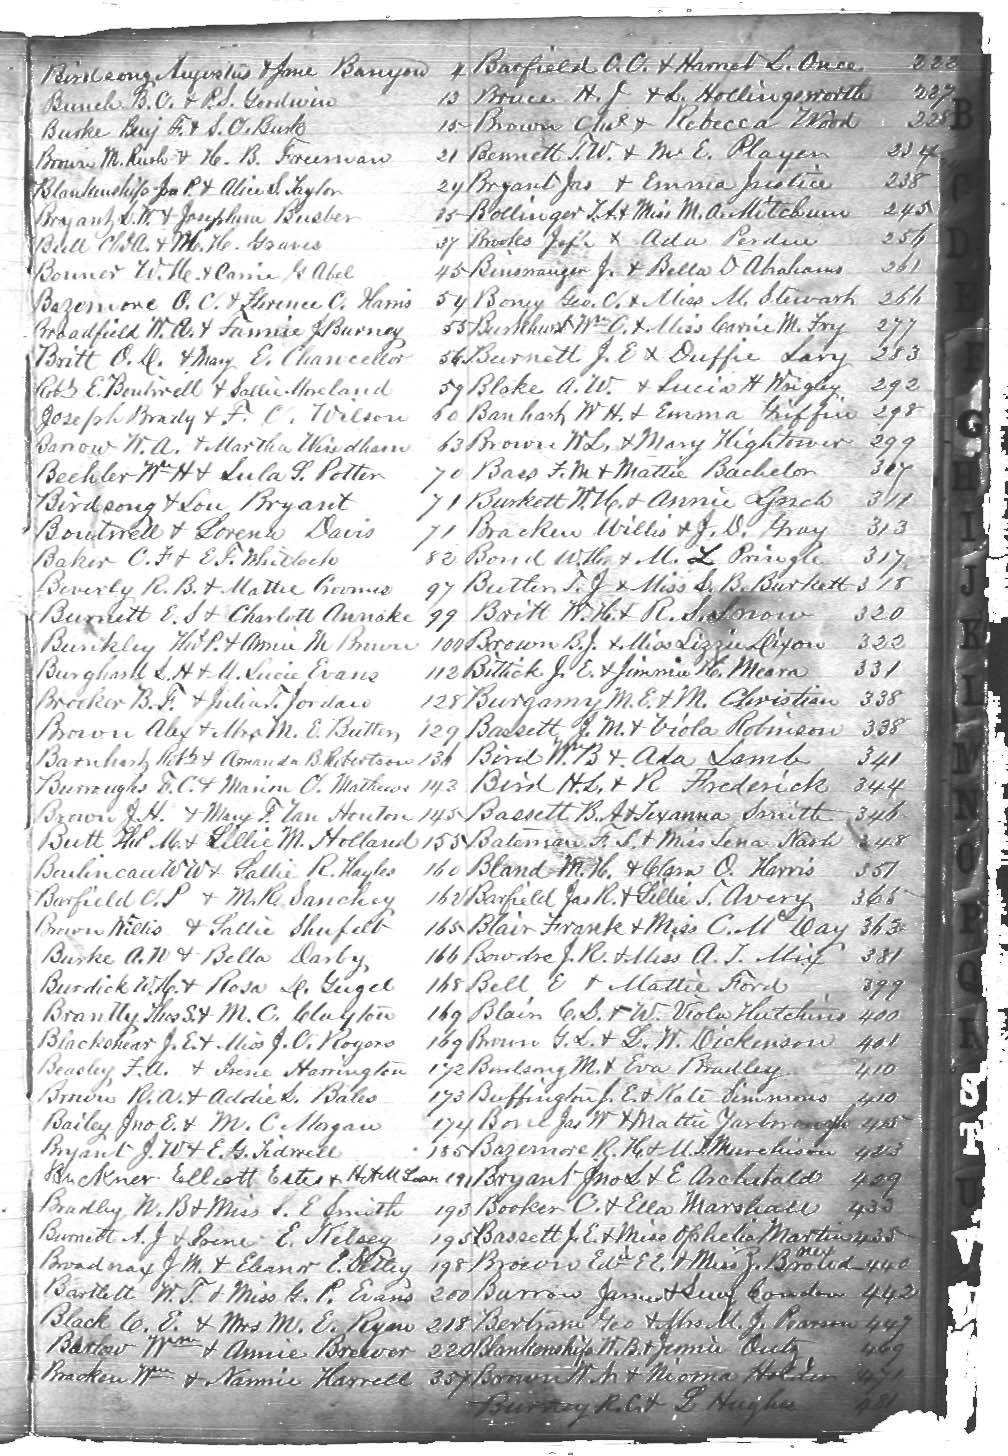 Birdsong Augustus & Jane Banyon 4
Bunch B. O. & P. S. Goodwin 13
Burke Benj F. & S. O. Burk 15
Brown M. Rush & H. B. Freeman 21
Blankenship Jas P. & Alice S. Taylor 24
Bryant S. W. & Josephine Busber 25
Bull Chs A. & M. H. Graves 37
Bonner W. H. & Carrie G Abel 45
Bazemore O. C. & Florence C. Harris 54
Broadfield W. A. & Fannie J Burney 55
Britt O. D. & Mary E. Chancellor 56
Robt E. Boutwell & Sallie Moreland 59
Joseph Brady & F. C. Wilson 60
Barrow W. A. & Martha Windham 63
Beehler Wm H & Lula S. Potter 70
Birdsong & Lou Bryant 71
Boutwell & Lorena Davis 71
Baker C. F & E. F. 82
Beverly R. B. & Mattie Crooms 97
Burnett E. S & Charlott Annske 99
Bunkley Thos P. & Annie M Brown 100
Burghard S. H & M. Lucie Evans 112
Brocker B. F. & Julia T. Jordan 128
Brown Alex & Mrs M. E. Butten 129
Barnhart Robt & Amanda B. Robertson 136
Burroughs T. C. & Marion O. Mathews 143
Brown J. H. & Mary F. Van Houton 145
Butt Thos M. & Lillie M. Holland 155
W W & Sallie R. Hayles 160
Barfield C. P & M. R. Sanchey 162
Brown Willis & Sallie Shufelt 165
Burke A. W & Bella Darby 166
Burdick W. H. & Rosa D. Gugel 168
Brantly Thos S. & M. C. Clayton 169
Blackshear J. E. & Miss J. O. Rogers 169
Beasley F. A. & Irene Harrington 172
Brown R. A. & Addie S. Bales 173
Bailey Jno E. & M. C Morgan 174
Bryant J. W & E. G. Tidwell 185
Buckner Elliott Estes & H. A. M 191
Bradley W. B & Miss S. E Smith 193
Burnett A. J & Irene E. Kelsey 195
Broadnax J. M. & Eleanor E. 198
Bartlett W. T. & Miss G. P. Evans 200
Black C. E. & Mrs M. E. Ryan 218
Barlow Wm & Annie Brewer 220
Bracken Wm & Nannie Harrell 357
Barfield O. C. & Harriet L. Once 222
Bruce H. J & L. Hollingsworth 227
Brown Chs & Rebecca Wood 228
Bennett T. W. & M E. Player 234
Bryant Jas & Emma Justice 238
Bollinger T. A. & Miss M. A. Mitchum 245
Brooks Jeff & Ada Perdue 256
Binswanger J. & Bella D Abrahams 261
Boney Geo. C. & Miss M. Stewart 266
Burkhurst Wm C. & Miss Carrie M. Fry 277
Burnett J. E & Duffie Lary 283
Blake A. W. & Lucia H Wrigley 292
Banhart W H. & Emma Griffin 298
Brown W L. & Mary Hightower 299
Bass F. M & Mattie Bachelor 307
Burkett W. H. & Annie Lynch 311
Bracken Willis & J. D. Gray 313
Bond W. H. & M. L Pringle 317
Butler T. J & Miss S. B. Burkett 318
Britt W. H. & R. S. Snow 320
Brown B. J. & Miss Lizzie Dixon 322
Bittick J. E. & Jimmie H. Meara 331
Burgamy M. E. & M. Christian 338
Bassett J. M. & Viola Robinson 338
Bird Wm B & Ada Lamb 341
Bird H. L. & R Frederick 344
Bassett B. A & Texanna Smith 346
Bateman F. S. & Miss Lena Nash 348
Bland M. H. & Clara O. Harris 351
Barfield Jas R. & Lillie T. Avery 365
Blair Frank & Miss C. McDay 363
Bowdre J. R. & Miss A. T. Mix 381
Bell E & Mattie Ford 399
Blain C. S. & W. Viola Hutchins 400
Brown G. L. & L. W. Dickenson 401
M. & Eva Bradley 410
Buffington J. E. & Kate Simmons 410
Bond Jas W & Mattie Yarbrough 425
Bazemore R. H. & M. J Murchison 423
Bryant Jno L & E Archibald 429
Booker O. & Ella Marshall 433
Bassett J. E. & Miss Ophelia Martin 435
Brown Edw E E. & Miss J. 440
Burrow James & Lucy Cowden 442
Bertram Geo & Mrs M. J. Pearson 447
Blankenship W. B & Jennie Outz 469
Brown W. M & Nioma Holden 471
Burney R. C. & L Hughes 481
B
C
D
E
F
G
H
I
J
K
L
M
N
O
P
Q
R
T
U
V